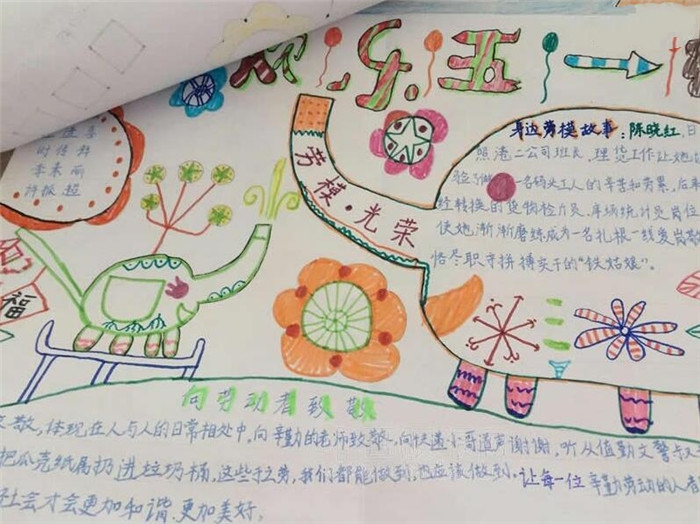 欢乐五一
劳模·光荣
身边劳模故事：陈晓红，日
照港二公司班长，理货工作让她
一名码头工人的辛苦和劳累，后来
使她渐渐磨练成为一名扎根一线爱岗
恪尽职守拼搏实干的“铁姑娘”。
时传祥
李素丽
许振超
福
向劳动者致敬
敬，体现在人与人的日常相处中，向辛勤的老师致敬，向快递小哥道声谢谢，听从值勤交警
把瓜壳纸屑扔进垃圾桶，这些，我们都能做到，也应该做到。让每一位辛勤劳动的人
社会才会更加和谐、更加美好。